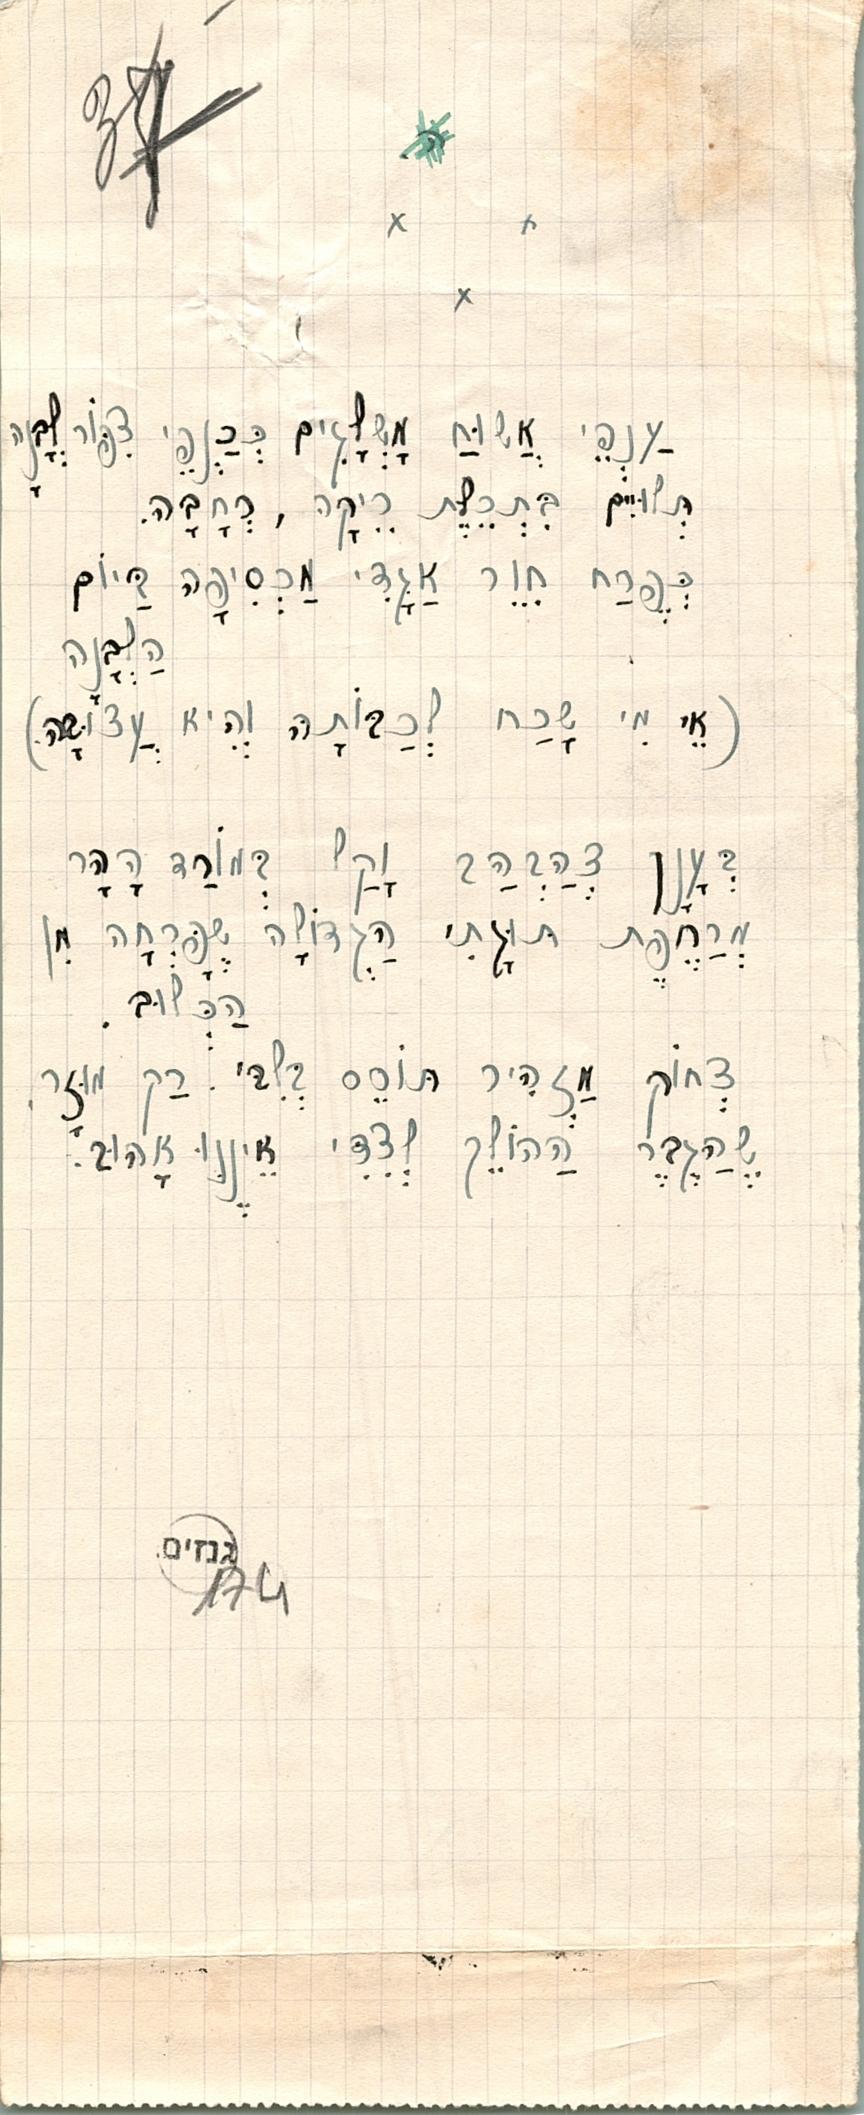 x x
x
עַנְפֵי אֲשׁוּחַ מָשְׁלָגִים כְּכַנְפֵי צִפּוֹר לְבָנָה
תְּלוּיִים בִּתְכֵלֶת רֵיקָה, רְחָבָה.
כְּפֶרַח חִוֵּר אַגָּדִי מַכְסִיפָה בַּיּוֹם
הַלְּבָנָה
(אֵי מִי שָׁכַח לְכַבּוֹתָהּ וְהִיא עֲצוּבָה.)
בְּעָנָן צְהַבְהַב וָקַל בְּמוֹרַד הָהָר
מְרַחֶפֶת תּוּגָתִי הַגְּדוֹלָה שֶׁפָּרְחָה מִן
הַכְּלוּב.
צְחוֹק מַזְהִיר תּוֹסֵס בְּלִבִּי. רַק מוּזָר,
שֶׁהַגֶּבֶר הַהוֹלֵךְ לְצִדִּי אֵינֶנּוּ אָהוּב.
גנזים
174